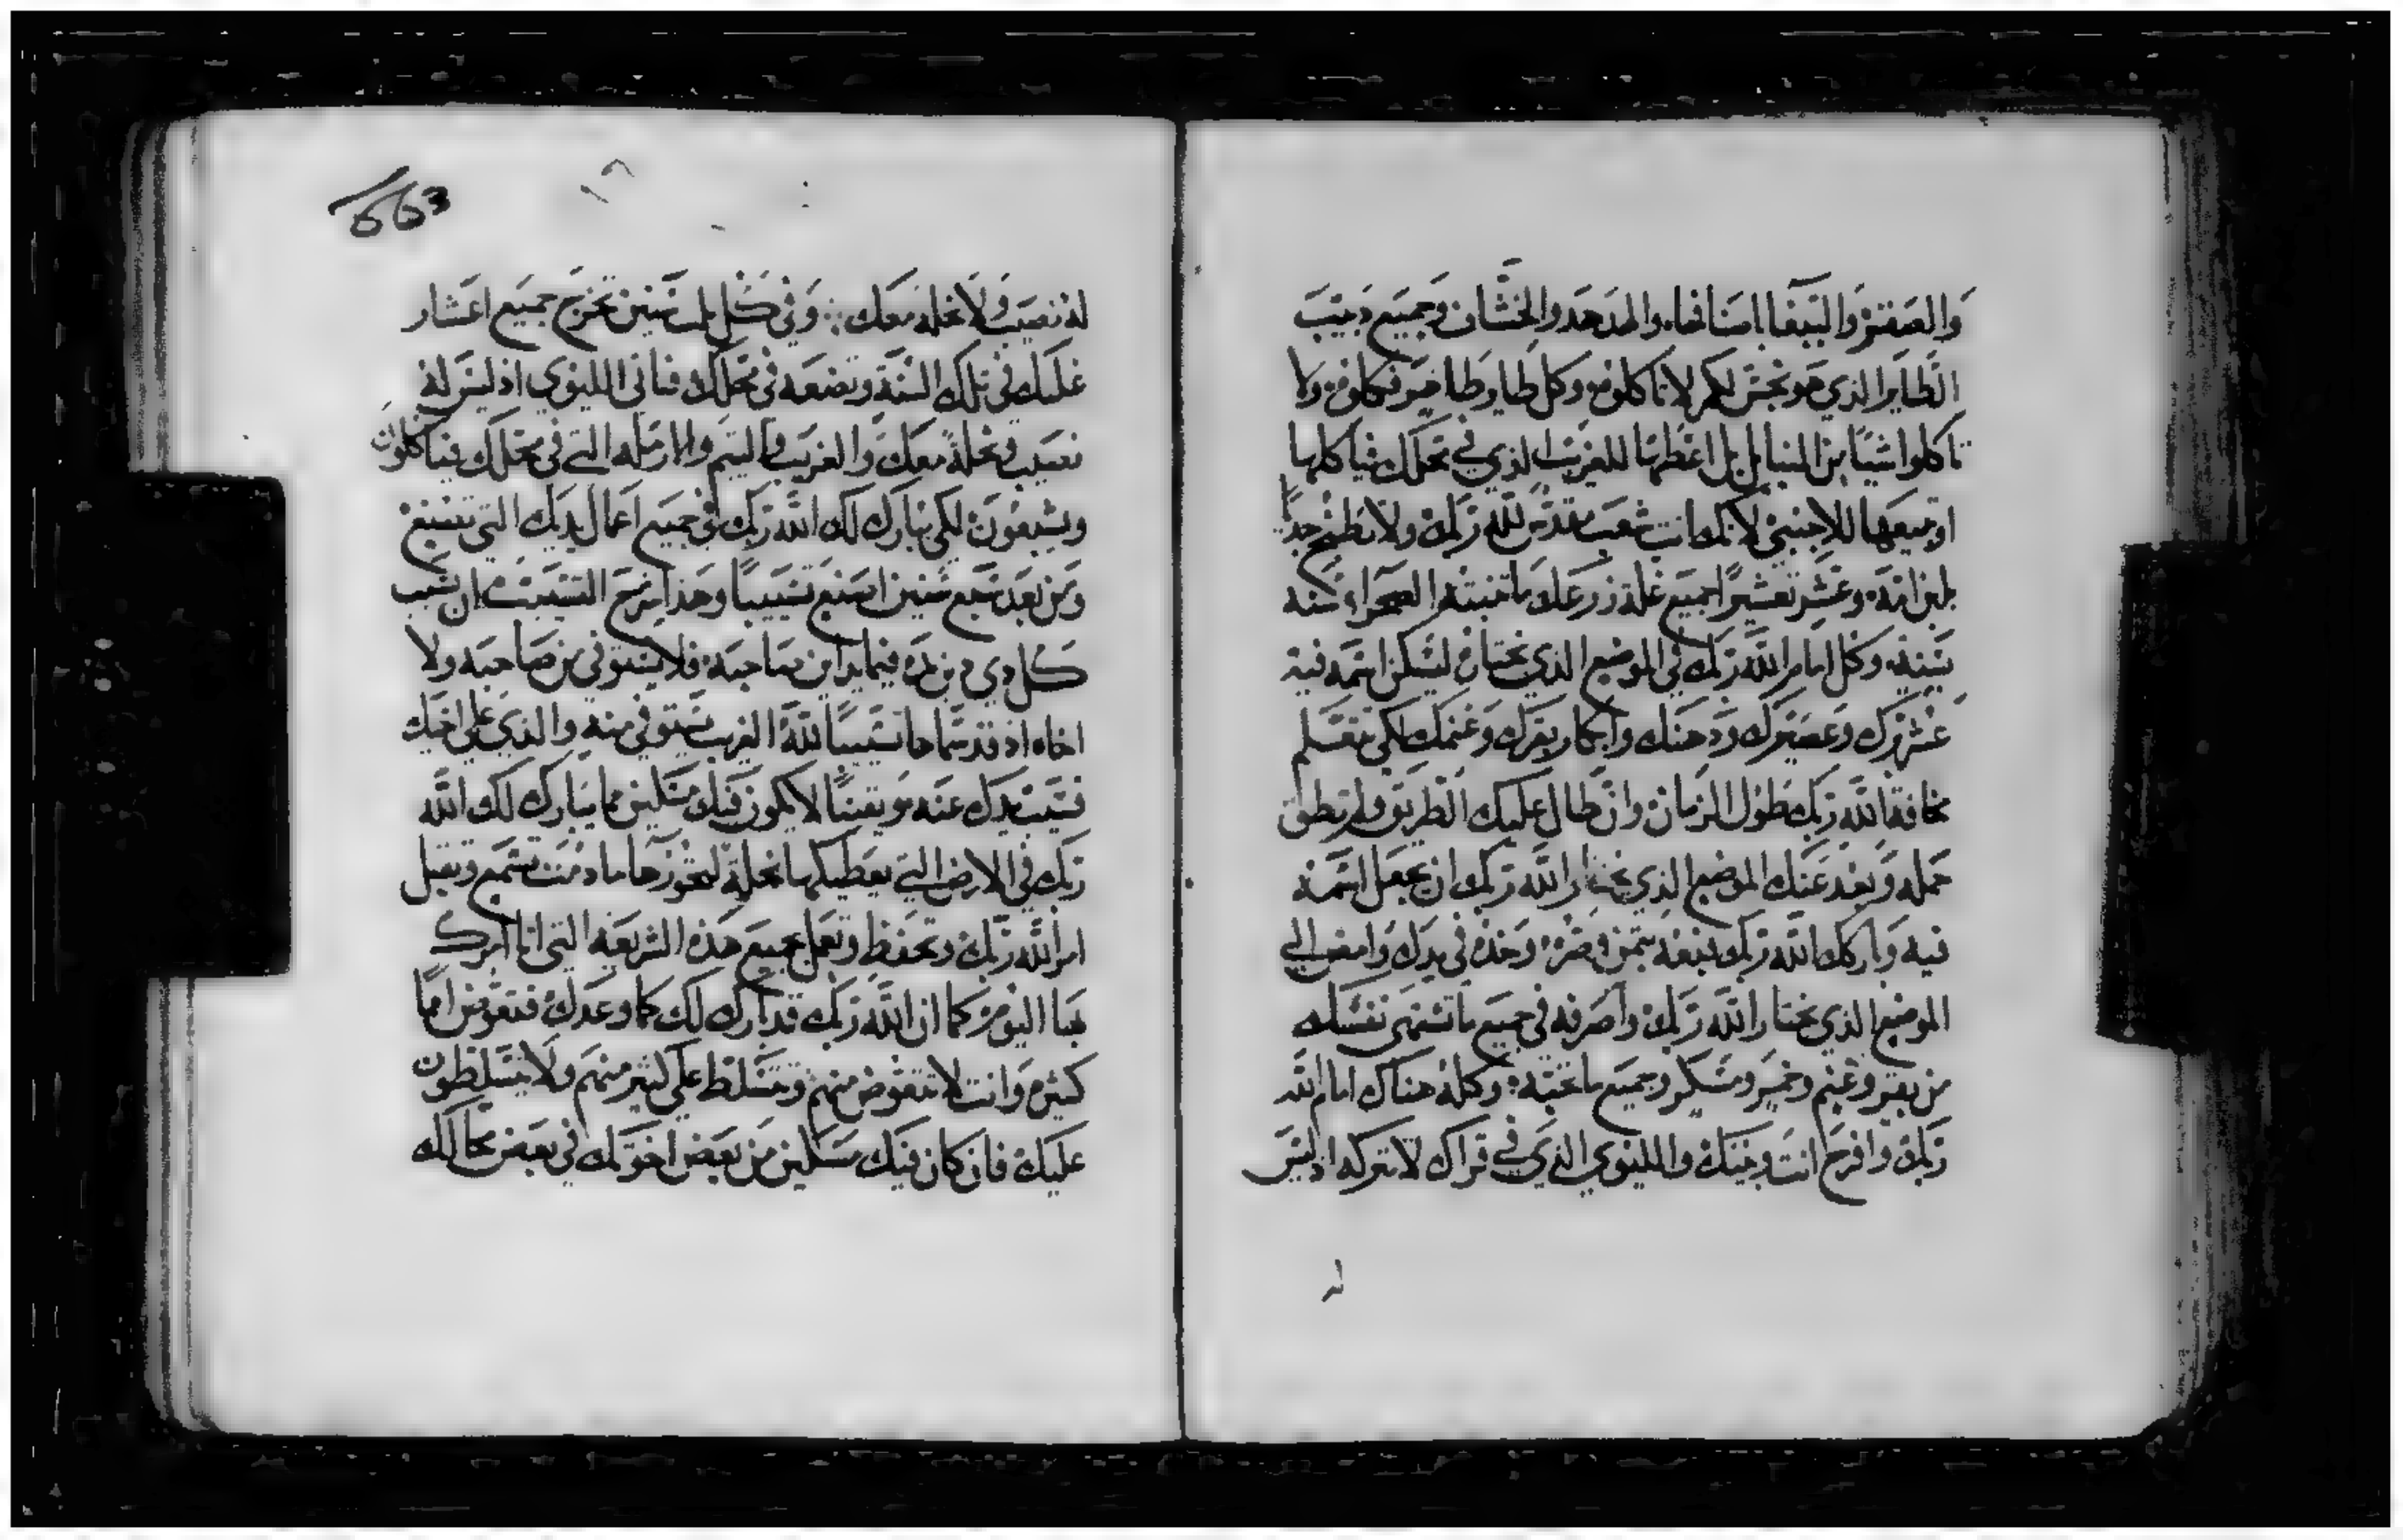 والصقر والببغا باصنافها والهدهد والخشاف وجميع دبيب
الطاير الذي هو نجس لكم لا تاكلوه وكل طاير طاهر فكلوه ولا
تاكلوا شيا من بل اعطها للغريب الذي في محلك فياكلها
او تبيعها للاجنبي لانك انت شعب مقدس لله ربك ولا تطبخ جديا
بلبن امه وعشر تعشيرا جميع غلة زرعك ما تنبته الصحراء سنه
بسنه وكل امام الله ربك في الموضع الذي يختاره ليسكن اسمه فيه
عشر برك وعصيرك ودهنك وابكار بقرك وغنمك لكي تتعلم
مخافة الله ربك طول الزمان وان طال عليك الطريق ولم تطق
حمله وبعد عنك الموضع الذي يختار الله ربك ان يجعل اسمه
فيه وبارك لك الله ربك بثمن فضه وخذه في يدك وامض الي
الموضع الذي يختار الله ربك واصرفه في جميع ما تشتهي نفسك
من بقر وغنم وخمر ومسكر وجميع ما تحبه وكله هناك امام الله
ربك وافرح انت وبيتك والليوي الذي في قراك لا تتركه اذ ليس
ل
663
١٢
له نصيب ولا نحله معك وفي كل ثلث سنين تخرج جميع اعشار
غلتك في تلك السنة وتضعه في محلك فياتي الليوي اذ ليس له
نصيب ونحلة معك والغريب واليتيم والارمله التي في محلك فياكلون
ويشبعون لكي يبارك لك الله ربك في جميع اعمال يديك التي تصنع
ومن بعد سبع سنين اصنع تسييبا وهذا شرح التسييب ان يسيب
كل ذي فيما يداين صاحبه فلا يستوفي من صاحبه ولا
اخاه اذ قد تسييبا لله الغريب تستوفي منه والذي على اخيك
فسيب يدك عنه يقينا لا يكون فيك مسكين مما يبارك لك الله
ربك في الارض التي يعطيكها نحلة لتحوزها مادمت تسمع وتقبل
امر الله ربك وتحفظ وتعمل جميع هذه الشريعه التي انا امرك
بها اليوم كما ان الله ربك قد بارك لك كما وعدك فتقرض امما
كثيره وانت لا تقترض منهم وتتسلط على كثير منهم ولا يتسلطون
عليك فان كان فيك مسكين من بعض اخوتك في بعض محالك